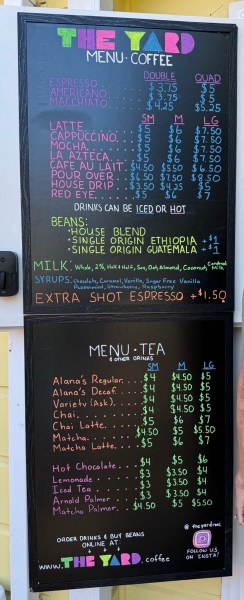 THE YARD
MENU • COFFEE
DOUBLE QUAD
ESPRESSO....... $3.75 $5
AMERICANO..... $3.75 $5
MACCHIATO..... $4.25 $5.25
SM M LG
LATTE......... $5 $6 $7.50
CAPPUCCINO.... $5 $6 $7.50
MOCHA......... $5 $6 $7.50
LA AZTECA..... $5 $6 $7.50
CAFE AU LAIT.. $4.50 $5.50 $6.50
POUR OVER..... $6.50 $7.50 $8.50
HOUSE DRIP.... $3.50 $4.25 $5
RED EYE....... $5 $6 $7
DRINKS CAN BE ICED OR HOT
BEANS:
• HOUSE BLEND
• SINGLE ORIGIN ETHIOPIA +$1
• SINGLE ORIGIN GUATEMALA +$1
MILK: Whole, 2%, Half & Half, Soy, Oat, Almond, Coconut, Milk
SYRUPS: Chocolate, Caramel, Vanilla, Sugar Free Vanilla
Peppermint, Strawberry, Raspberry
EXTRA SHOT ESPRESSO +$1.50
MENU • TEA
& OTHER DRINKS
SM M LG
Alana's Regular.. $4 $4.50 $5
Alana's Decaf.... $4 $4.50 $5
Variety (Ask).... $4 $4.50 $5
Chai............. $4 $4.50 $5
Chai Latte....... $5 $6 $7
Matcha........... $4.50 $5 $5.50
Matcha Latte..... $5 $6 $7
Hot Chocolate.... $4 $5 $6
Lemonade......... $3 $3.50 $4
Iced Tea......... $3 $3.50 $4
Arnold Palmer.... $3 $3.50 $4
Matcha Palmer.... $4.50 $5 $5.50
ORDER DRINKS & BUY BEANS
ONLINE AT
WWW.THE YARD.coffee
FOLLOW US
ON INSTA!